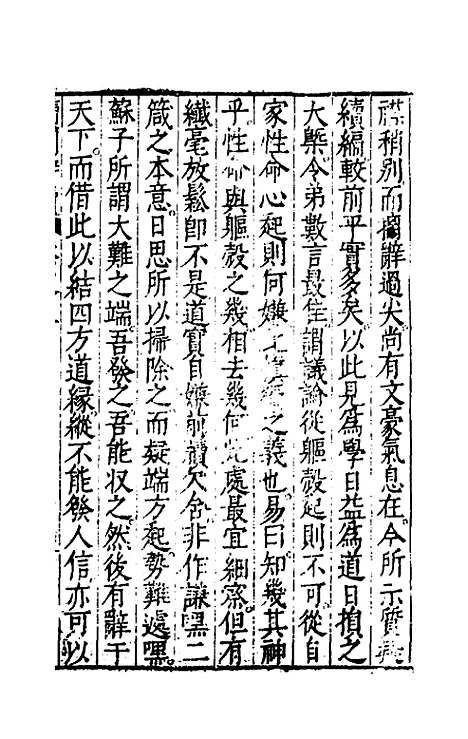 襟稍別而措辭過尖尚有文豪氣息在今所示質
續編較前平實多矣以此見爲學日益爲道日損之
大槩令弟數言最佳謂議論從軀殼起則不可從自
家性命心起則何嫌之義也易曰知幾其神
乎性命與軀殼之幾相去幾何此處最宜細察但有
纖毫放鬆卽不是道實自嫌前牘欠含非作謙嘿二
箴之本意日思所以掃除之而疑端方起勢難遽嘿
蘇子所謂大難之端吾發之吾能收之然後有辭于
天下而借此以結四方道緣縱不能發人信亦可以